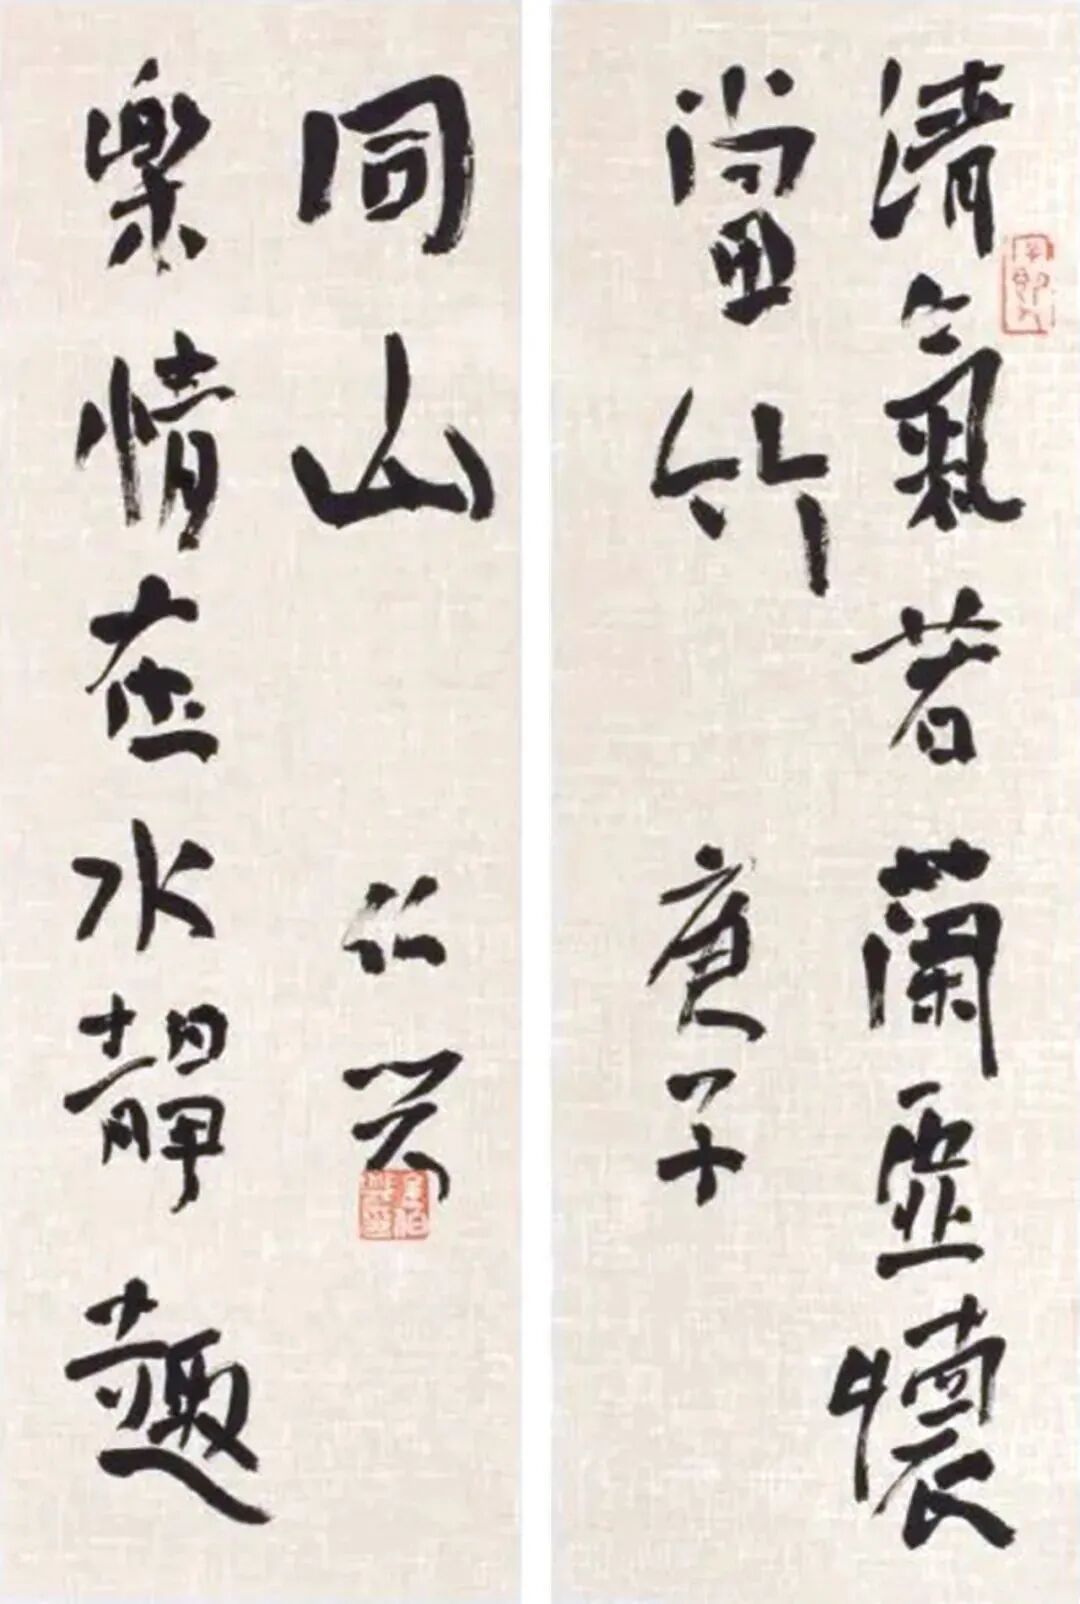 清氣若蘭虛懷
當竹 庚子
樂情在水靜趣
同山 仁